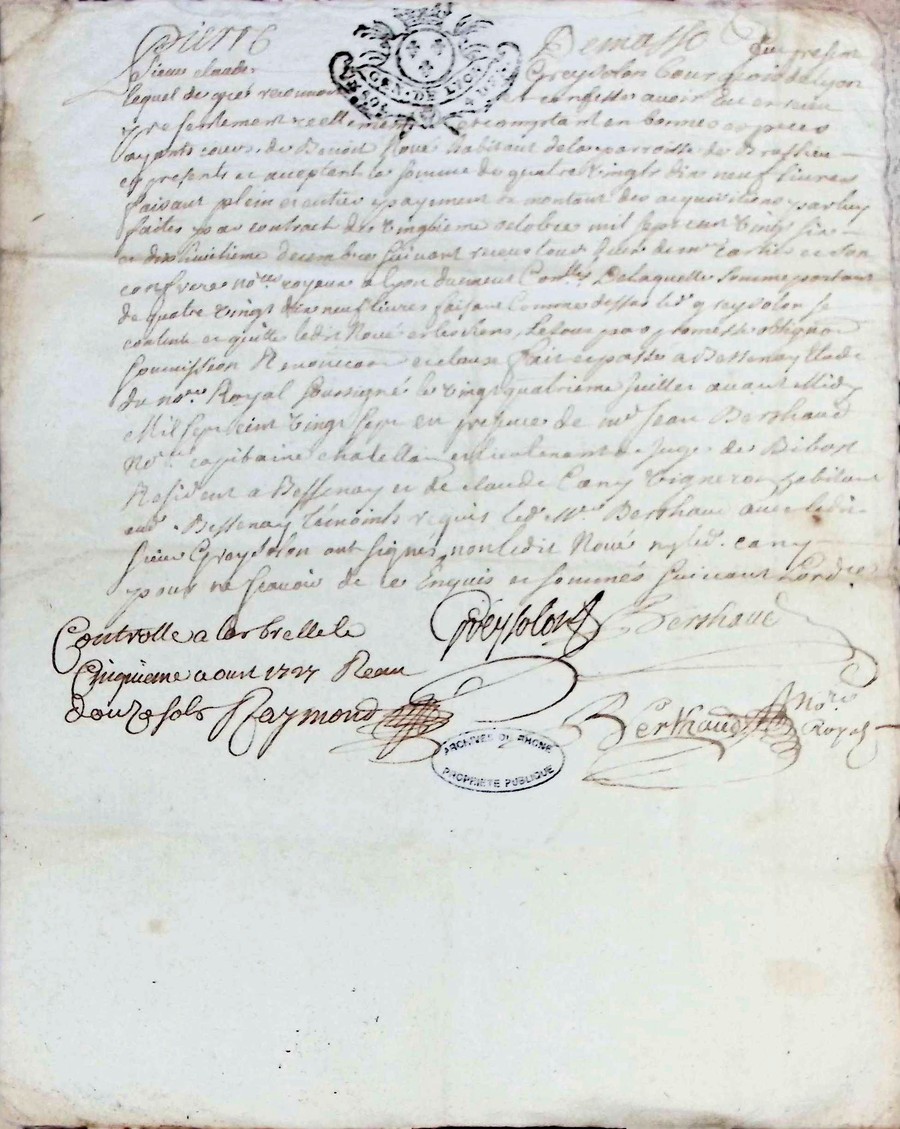 Pierre Demasso
GEN. DE LYON
fut present
Sieur claude Greysolon bourgeois de Lyon
lequel de gré reconnoit et confesse avoir eu et receu
presentement reellement et comptant en bonnes especes
ayants cours, de Benoit Noué habitant de la parroisse de Brussieu
cy present et acceptant la somme de quatre Vingts dix neuf livres
faisant plein et entier payement du montant des acquisitions par luy
faites par contract du Vingtieme octobre mil sept cent Vingt six
et dix huitieme decembre suivant receus tous deux de me et son
confrere nores royeaux a Lyon duement Contlés De laquelle somme portant
de quatre Vingt dix neuf livres faisant Comme dessus led. greysolon se
contente et quitte ledit Noué et les siens, Le tout par promesse obligaon
soumission Renonciaon et clause fait et passé a Bessenay Etude
du nore Royal soussigné le Vingt quatrieme Juillet avant Midy
Mil sept cent Vingt sept en presence de me Jean Berthaud
Nore capitaine chatellain et lieutenant de Juge de Bibost
Resident a Bessenay et de claude Cany Vigneron habitant
aud. Bessenay temoints requis led. Me. Berthaud avec ledit
sieur Greysolon ont signés, non ledit Noué ny led. cany
pour ne scavoir de ce Enquis et sommés suivant Lordce
Greysolon Berthaud
Controlle a larbrelle le
Cinquieme aoust 1727 Receu
douze sols Raymond
Berthaud Nore
Royal
ARCHIVES DU RHONE
PROPRIETE PUBLIQUE